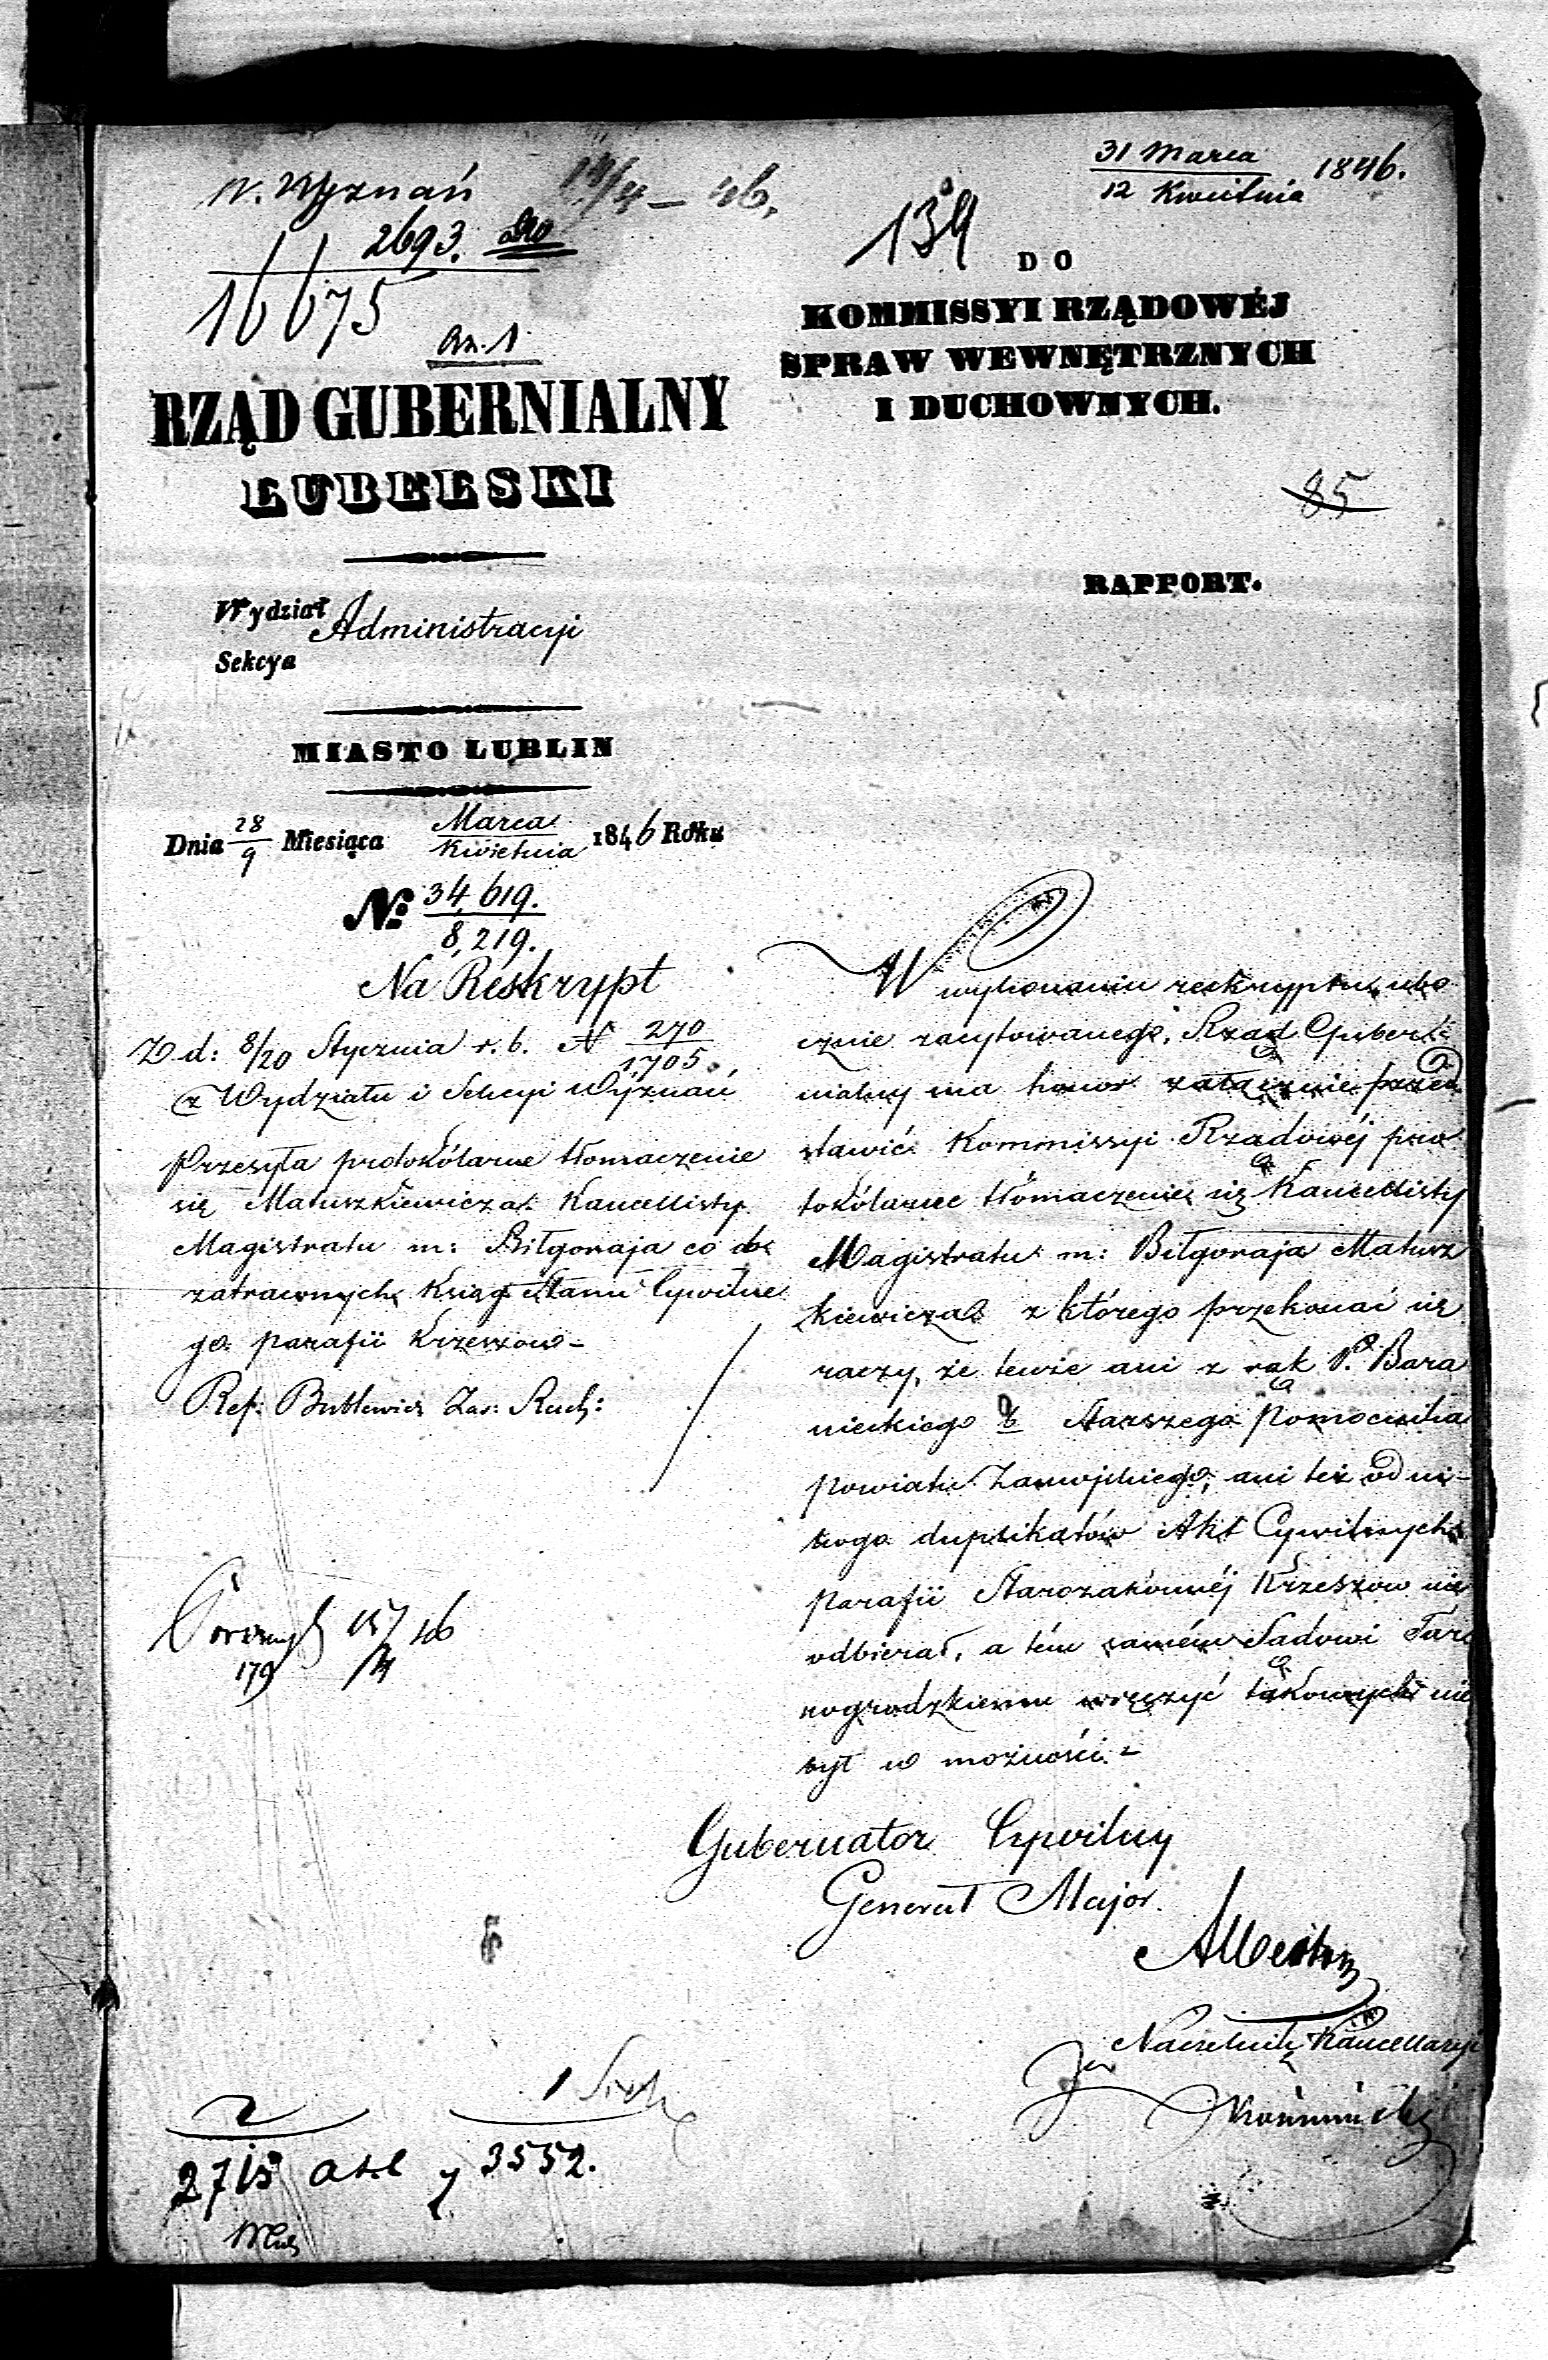 W. Wyznań 14/4 – 46.
2693.
16675
An. 1
RZĄD GUBERNIALNY
LUBELSKI
Wydział Administracyi
Sekcya
MIASTO LUBLIN
Dnia 28/9 Miesiąca Marca/Kwietnia 1846 Roku
№ 34,619.
8,219.
Na Reskrypt
Z d: 8/20 Stycznia r. b. N 270/1,705
z Wydziału i Sekcyi Wyznań
Przesyła protokólarne tłomaczenie
się Matuszkiewicza Kancellisty
Magistratu m: Biłgoraja co do
zatraconych Ksiąg Stanu Cywilne
go parafii Krzeszow –
Ref: Butlewicz
179
31 Marca
12 Kwietnia 1846.
139
DO
KOMMISSYI RZĄDOWÉJ
SPRAW WEWNĘTRZNYCH
I DUCHOWNYCH.
85
RAPPORT.
W wykonaniu reskryptu ubo
cznie zacytowanego, Rząd Guber
nialny ma honor załącznie przed
stawić Kommissyi Rządowéj pro
tokólarne tłómaczenie się Kancellisty
Magistratu m: Biłgoraja Matusz
kiewicza z którego przekonać się
raczy, że tenże ani z rąk P. Bara
nieckiego b Starszego Pomocnika
powiatu Zamojskiego, ani też od ni-
kogo duplikatów Akt Cywilnych
parafii Starozakonnéj Krzeszow nie
odbierał, a tém samém Sądowi Tar
nogrodzkiemu wręczyć takowych nie
był w możności. –
Gubernator Cywilny
Generał Major
Albertow
Naczelnik Kancellaryi
2715 3552.